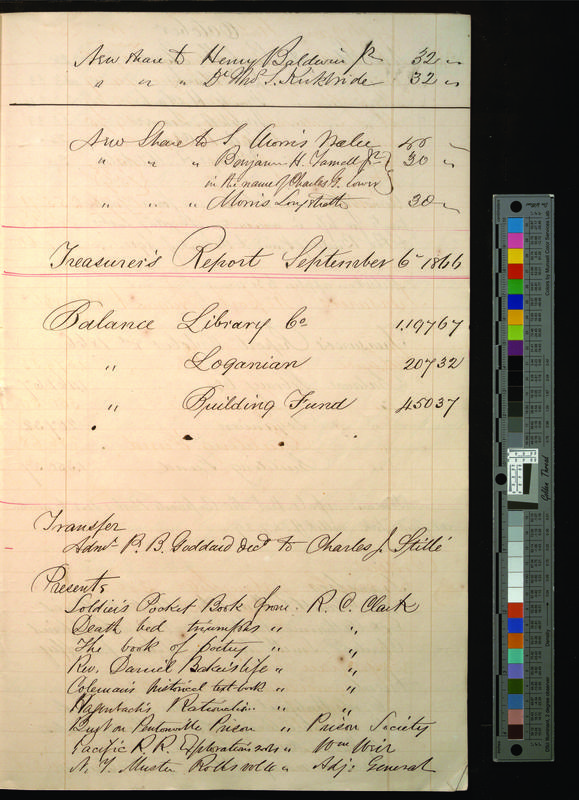 New Share to Henry Baldwin Jr 32 "
" " " Dr Thos S. Kirkbride 32 "
New Share to S. Morris 
" " " Benjamin H. Yarnall Jr 30 "
in the name of Charles G. Lower
" " " Morris Longstreth 30 "
Treasurer's Report September 6" 1866
Balance Library Co 1,197 67
" Loganian 207 32
" Building Fund 450 37
Transfer
Admr P. B. Goddard Decd to Charles J. Stillé
Presents
Soldier's Pocket Book from R. C. Clark
Death bed triumphs " "
The book of poetry " "
Rev. Daniel Baker's life " "
Coleman's historical text-book " "
Hagenbach's Rationalism " "
Burt on Pentonville Prison " Prison Society
Pacific R R Explorations " Wm Weir
N. Y. Muster Rolls " Adj: General